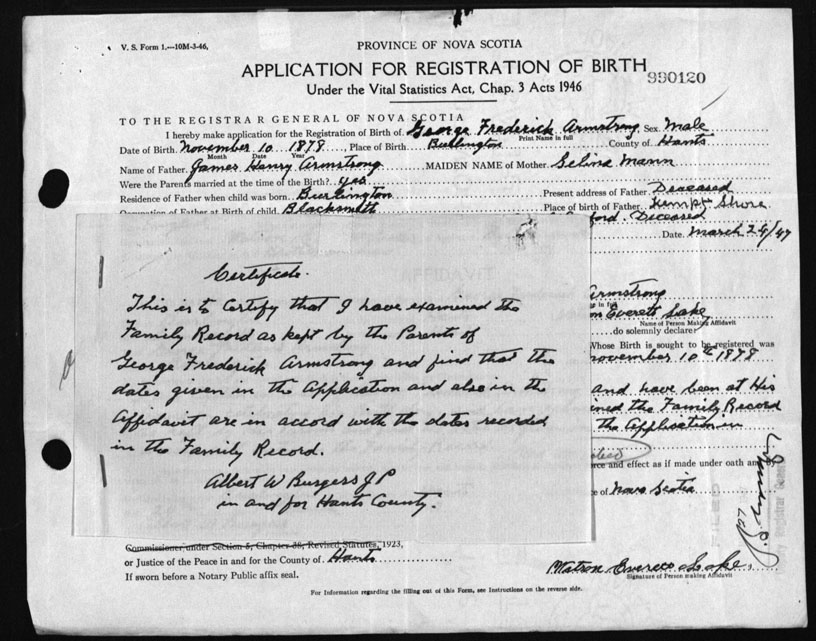 V. S. Form 1.—10M-3-46,
PROVINCE OF NOVA SCOTIA
APPLICATION FOR REGISTRATION OF BIRTH
990120
Under the Vital Statistics Act, Chap. 3 Acts 1946
TO THE REGISTRAR GENERAL OF NOVA SCOTIA
I hereby make application for the Registration of Birth of George Frederick Armstrong Sex Male
Print Name in full
Date of Birth November 10 1878, Place of Birth Burlington County of Hants
Month Date Year
Name of Father James Henry Armstrong MAIDEN NAME of Mother Selina Mann
Were the Parents married at the time of the Birth? yes
Residence of Father when child was born Burlington Present address of Father Deceased
Occupation of Father at Birth of child Blacksmith Place of birth of Father Kempt Shore
Deceased
Date March 24/47
Certificate.
This is to Certify that I have examined the
Family Record as kept by the Parents of
George Frederick Armstrong and find that the
dates given in the Application and also in the
Affidavit are in accord with the dates recorded
in the Family Record.
Albert W Burgess J P
in and for Hants County.
Armstrong
Everett Lake
Name of Person Making Affidavit
do solemnly declare:
Whose Birth is sought to be registered was
November 10th 1878
and have been at His
the Family Record
the Application in
and effect as if made under oath and
of Nova Scotia
Commissioner under Section 5, Chapter 38, Revised Statutes, 1923,
or Justice of the Peace in and for the County of Hants
If sworn before a Notary Public affix seal.
Watson Everett Lake
Signature of Person making Affidavit
For Information regarding the filling out of this Form, see Instructions on the reverse side.